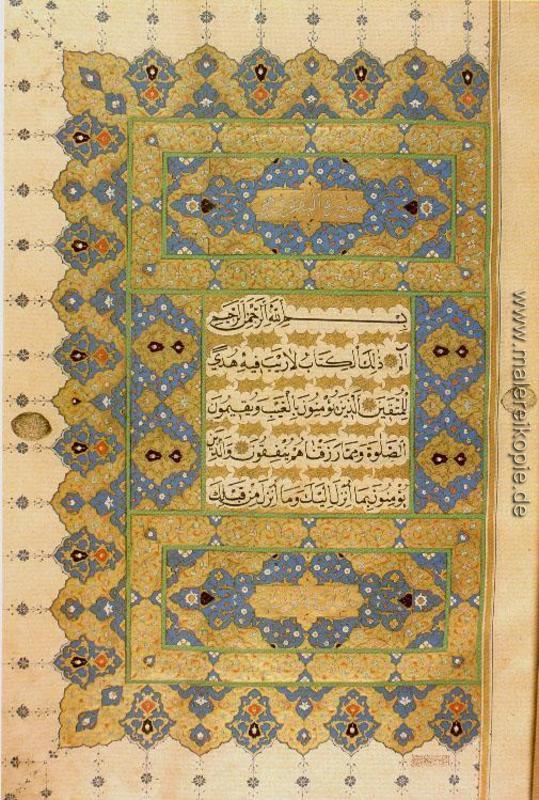 بسم الله الرحمن الرحيم
الم ذلك الكتاب لا ريب فيه هدى
للمتقين الذين يؤمنون بالغيب ويقيمون
الصلوة ومما رزقناهم ينفقون والذين
يؤمنون بما أنزل إليك وما أنزل من قبلك
www.malereikopie.de